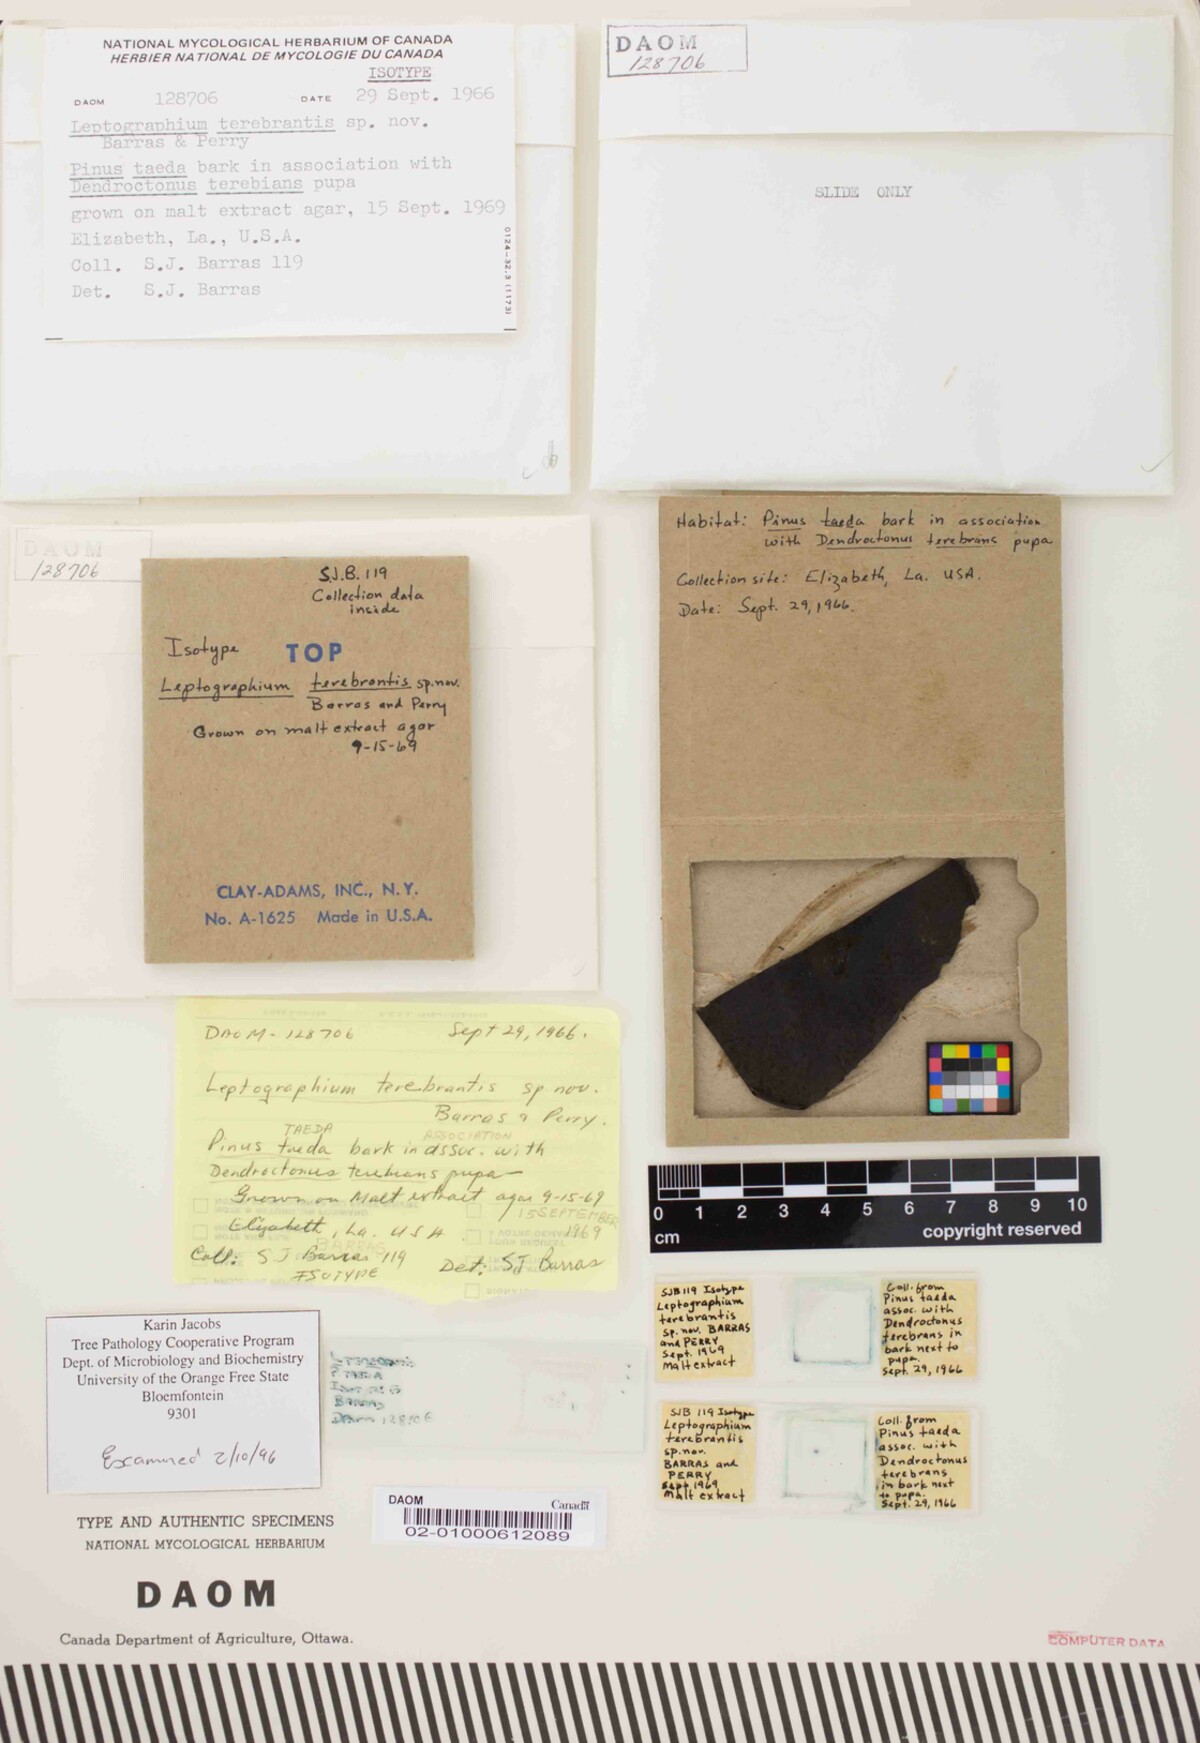 NATIONAL MYCOLOGICAL HERBARIUM OF CANADA
HERBIER NATIONAL DE MYCOLOGIE DU CANADA
ISOTYPE
DAOM 128706 DATE 29 Sept. 1966
Leptographium terebrantis sp. nov.
Barras & Perry
Pinus taeda bark in association with
Dendroctonus terebians pupa
grown on malt extract agar, 15 Sept. 1969
Elizabeth, La., U.S.A.
Coll. S.J. Barras 119
Det. S.J. Barras
0124-32.3 (1173)
DAOM
128706
SLIDE ONLY
DAOM
128706
S.J.B. 119
Collection data
inside
Isotype TOP
Leptographium terebrantis sp.nov.
Barras and Perry
Grown on malt extract agar
9-15-69
CLAY-ADAMS, INC., N.Y.
No. A-1625 Made in U.S.A.
Habitat: Pinus taeda bark in association
with Dendroctonus terebrans pupa
Collection site: Elizabeth, La. USA.
Date: Sept. 29, 1966.
DAOM-128706 Sept 29, 1966.
Leptographium terebrantis sp nov.
Barras & Perry.
TAEDA ASSOCIATION
Pinus taeda bark in assoc. with
Dendroctonus terebians pupa
Grown on Malt extract agar 9-15-69
15 SEPTEMBER
1969
Elizabeth, La. USA
BARRAS
Coll: S J Barras 119
Det: SJ Barras
ISOTYPE
0 1 2 3 4 5 6 7 8 9 10
cm
copyright reserved
SJB 119 Isotype
Leptographium
terebrantis
sp. nov. BARRAS
and PERRY
Sept. 1969
Malt extract
Coll. from
Pinus taeda
assoc. with
Dendroctonus
terebrans in
bark next to
pupa.
Sept. 29, 1966
SJB 119 Isotype
Leptographium
terebrantis
sp. nov.
BARRAS and
PERRY
Sept 1969
Malt extract
Coll. from
Pinus taeda
assoc. with
Dendroctonus
terebrans
in bark next
to pupa.
Sept. 29, 1966
Karin Jacobs
Tree Pathology Cooperative Program
Dept. of Microbiology and Biochemistry
University of the Orange Free State
Bloemfontein
9301
Examined 2/10/96
P. TAEDA
BARRAS
DAOM 128706
DAOM Canada
02-01000612089
TYPE AND AUTHENTIC SPECIMENS
NATIONAL MYCOLOGICAL HERBARIUM
DAOM
Canada Department of Agriculture, Ottawa.
COMPUTER DATA